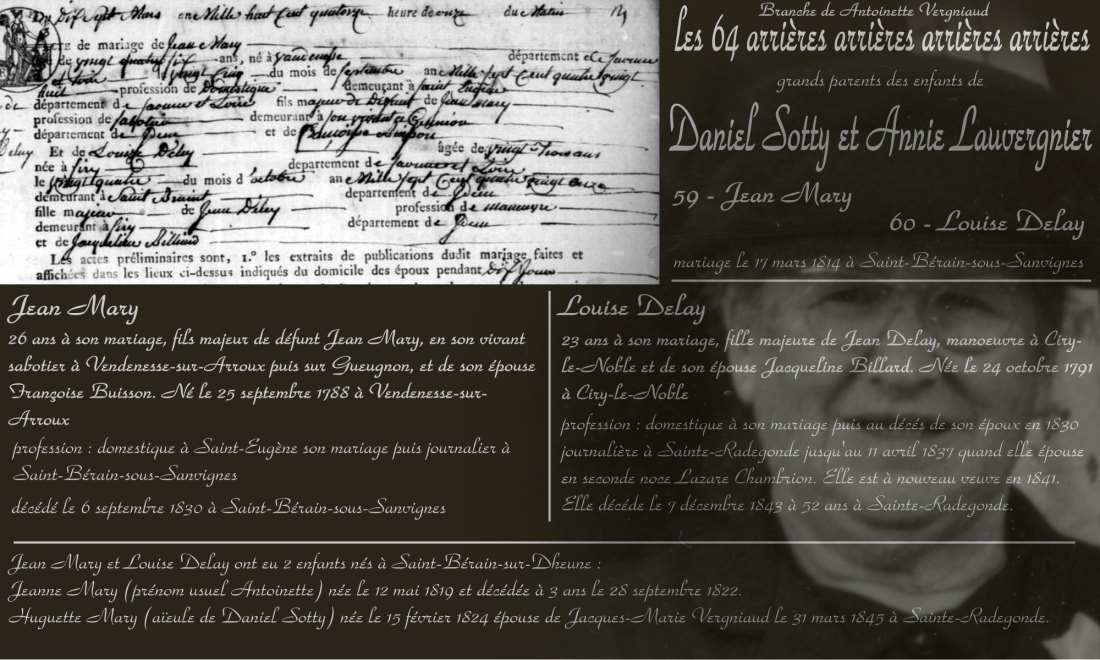 Dix sept Mars an Mille huit Cent quatorze heure de onze du Matin
Acte de mariage de Jean Mary
de vingt quatre six ans, né à département de Saone
vingt Cinq du mois de Septembre an Mille Sept Cent quatre vingt
huit profession de Domestique demeurant à Saint Eugène
département de Saone et Loire fils majeur de Défunt de Jean Mary
profession de Sabotier demeurant à Son vivant à
département de Idem et de
Et de Louise Delay âgée de vingt Trois ans
née à Siry département de Saone et Loire
le vingt quatre du mois d'octobre an Mille Sept Cent quatre vingt onze
demeurant à Saint département de Idem
fille majeur de Jean Delay profession de manœuvre
demeurant à Siry département de Idem
et de Jacqueline Billiard
Les actes préliminaires sont, 1.º les extraits de publications dudit mariage faites et
affichées dans les lieux ci-dessus indiqués du domicile des époux pendant dix Jours
Branche de Antoinette Vergniaud
les 64 arrières arrières arrières arrières
grands parents des enfants de
Daniel Sotty et Annie Lauvergnier
59 - Jean Mary
60 - Louise Delay
mariage le 17 mars 1814 à Saint-Bérain-sous-Sanvignes
Jean Mary
26 ans à son mariage, fils majeur de défunt Jean Mary, en son vivant
sabotier à Vendenesse-sur-Arroux puis sur Gueugnon, et de son épouse
Françoise Buisson. Né le 25 septembre 1788 à Vendenesse-sur-
Arroux
profession : domestique à Saint-Eugène son mariage puis journalier à
Saint-Bérain-sous-Sanvignes
décédé le 6 septembre 1830 à Saint-Bérain-sous-Sanvignes
Louise Delay
23 ans à son mariage, fille majeure de Jean Delay, manoeuvre à Ciry-
le-Noble et de son épouse Jacqueline Billard. Née le 24 octobre 1791
à Ciry-le-Noble
profession : domestique à son mariage puis au décés de son époux en 1830
journalière à Sainte-Radegonde jusqu'au 11 avril 1837 quand elle épouse
en seconde noce Lazare Chambrion. Elle est à nouveau veuve en 1841.
Elle décéde le 7 décembre 1843 à 52 ans à Sainte-Radegonde.
Jean Mary et Louise Delay ont eu 2 enfants nés à Saint-Bérain-sur-Dheune :
Jeanne Mary (prénom usuel Antoinette) née le 12 mai 1819 et décédée à 3 ans le 28 septembre 1822.
Huguette Mary (aïeule de Daniel Sotty) née le 15 février 1824 épouse de Jacques-Marie Vergniaud le 31 mars 1845 à Sainte-Radegonde.